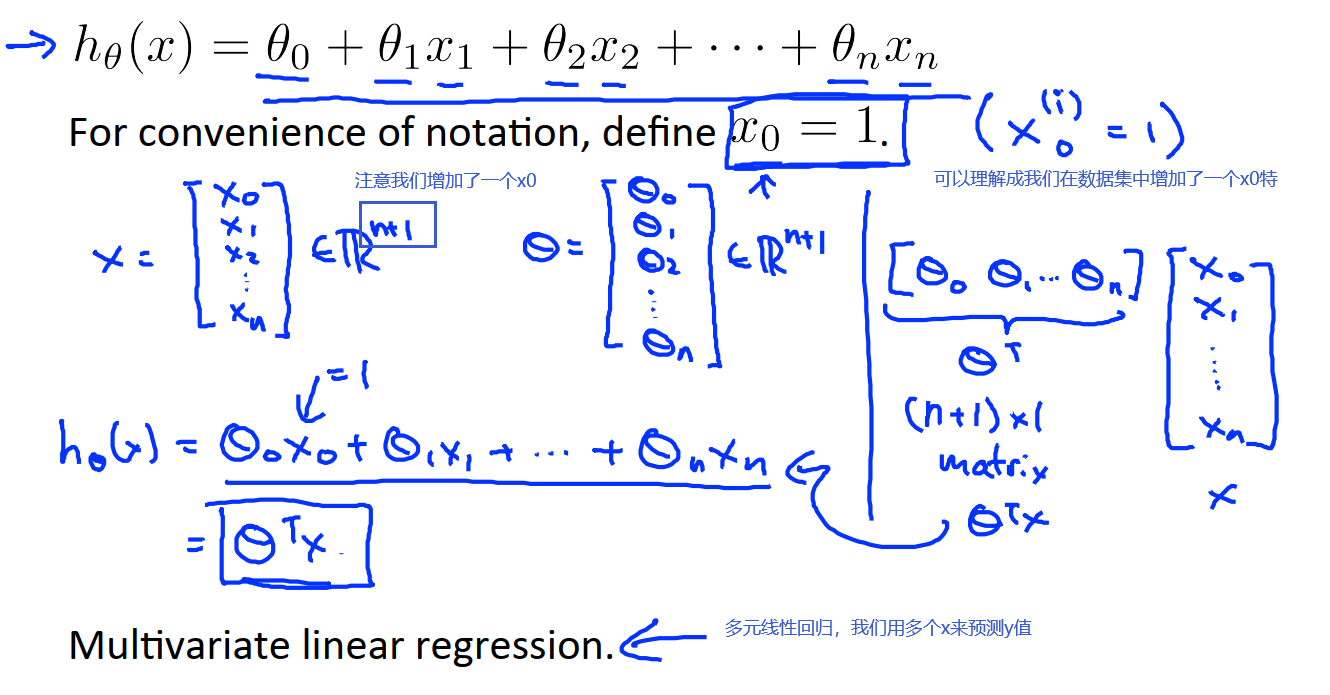 → hθ(x) = θ₀ + θ₁x₁ + θ₂x₂ + ⋯ + θₙxₙ
For convenience of notation, define x₀ = 1. (x₀⁽ⁱ⁾ = 1)
注意我们增加了一个x0
可以理解成我们在数据集中增加了一个x0特
x = [x₀ x₁ x₂ ⋮ xₙ] ∈ ℝⁿ⁺¹
θ = [θ₀ θ₁ θ₂ ⋮ θₙ] ∈ ℝⁿ⁺¹
[θ₀ θ₁ ⋯ θₙ] [x₀ x₁ ⋮ xₙ]
θᵀ
(n+1)×1
matrix
x
θᵀx
= 1
hθ(x) = θ₀x₀ + θ₁x₁ + ⋯ + θₙxₙ
= θᵀx.
Multivariate linear regression. ←
多元线性回归，我们用多个x来预测y值